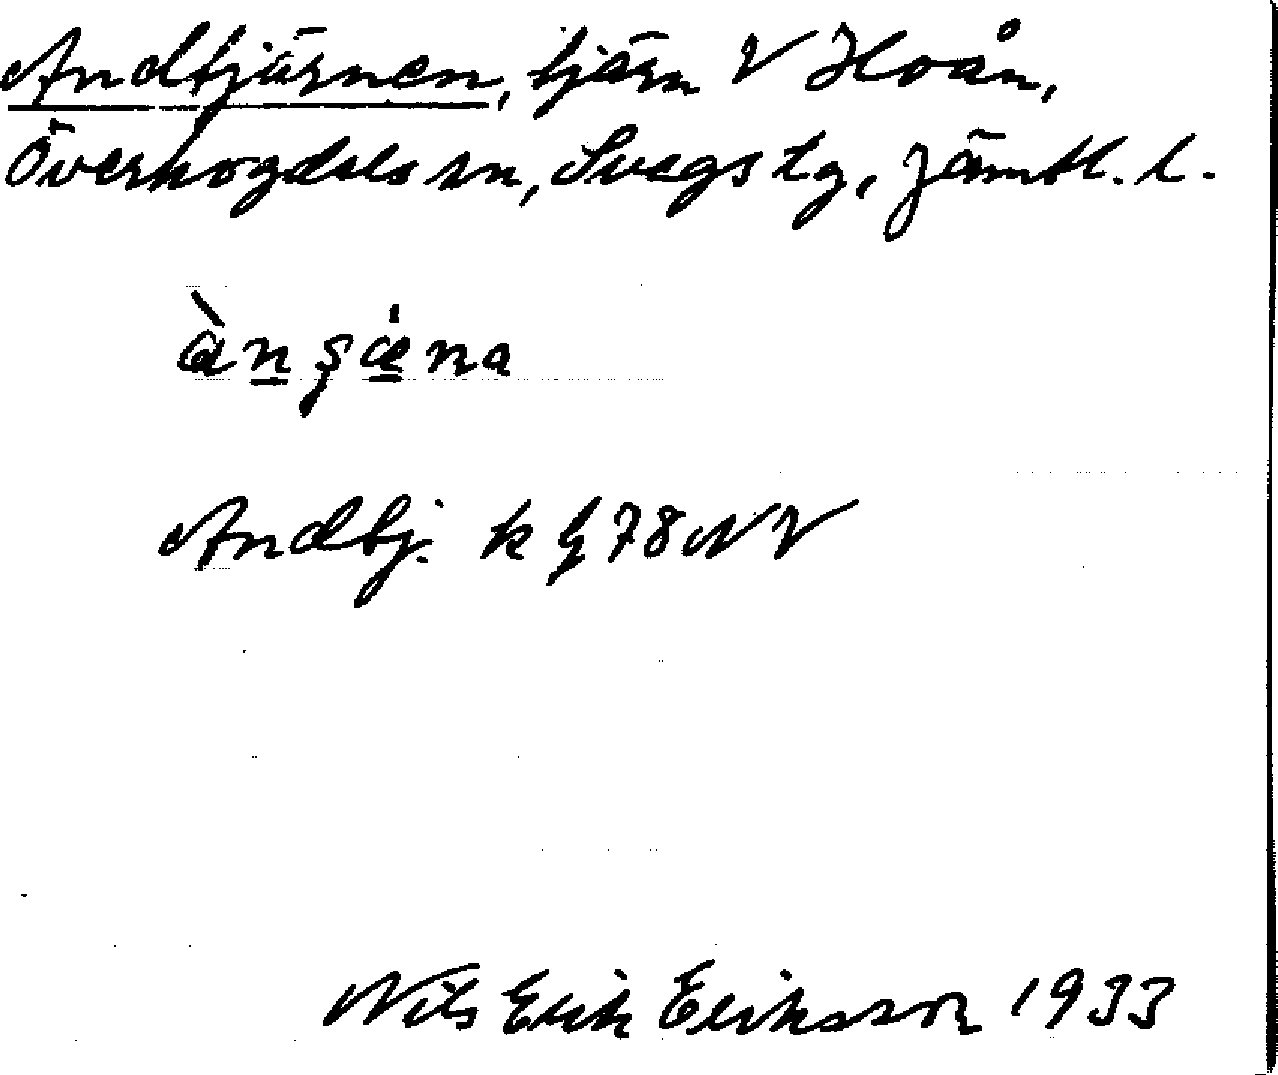 Andtjärnen, tjärn V Hoån,
Överhogdals sn, Svegs tg, Jämtl. l.
Andtj. k G 78 NV
Nils Erik Eriksson 1933